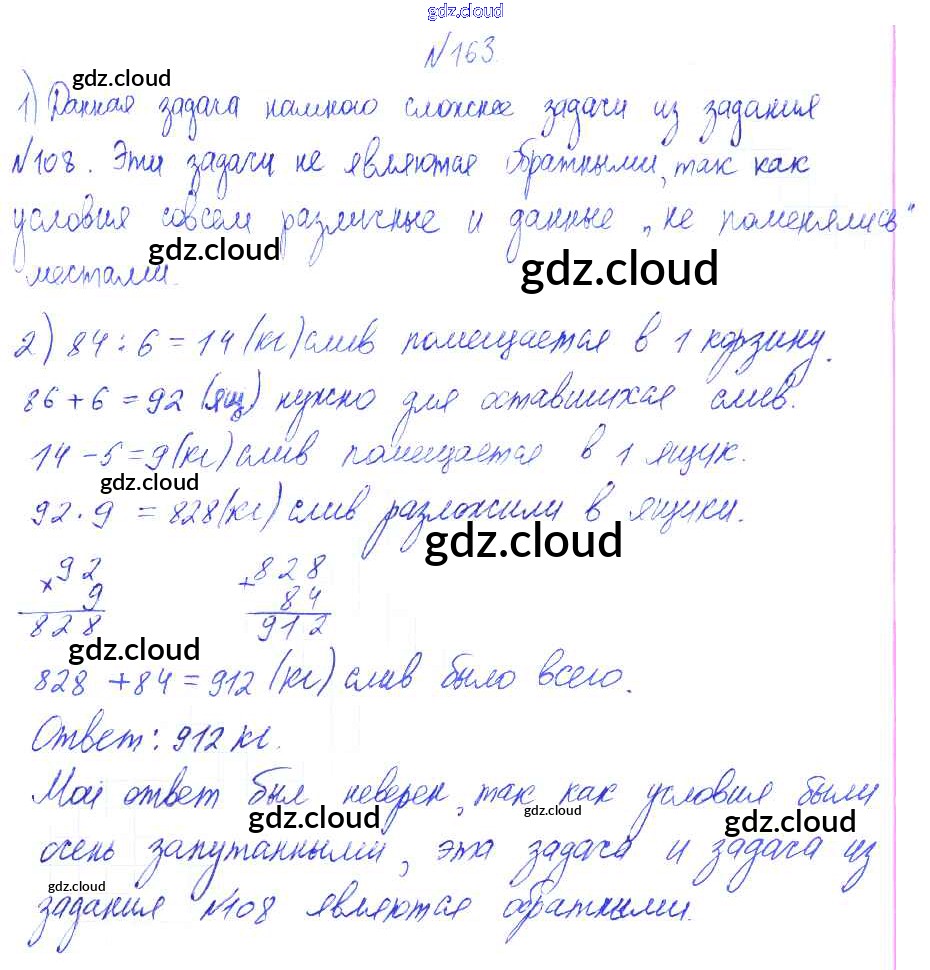 gdz.cloud
№163.
gdz.cloud
1) Данная задача намного сложнее задачи из задания
№108. Эти задачи не являются обратными, так как
условия совсем различные и данные „не поменялись"
gdz.cloud
gdz.cloud
местами.
2) 84 : 6 = 14 (кг) слив помещается в 1 корзину.
86 + 6 = 92 (ящ) нужно для оставшихся слив.
14 - 5 = 9 (кг) слив помещается в 1 ящик.
gdz.cloud
92 · 9 = 828 (кг) слив разложили в ящики.
gdz.cloud
×92 +828
9 84
828 912
gdz.cloud
828 + 84 = 912 (кг) слив было всего.
Ответ: 912 кг.
Мой ответ был неверен, так как условия были
gdz.cloud gdz.cloud gdz.cloud
очень запутанными, эта задача и задача из
gdz.cloud
задания №108 являются обратными.